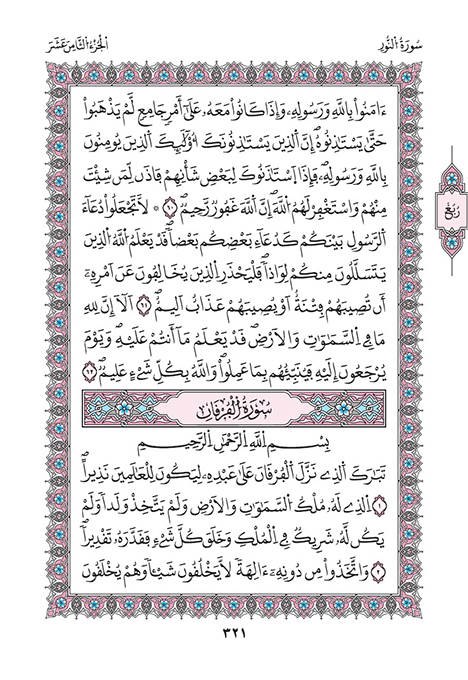 سُورَةُ النُّورِ
الجُزْءُ الثَّامِنَ عَشَرَ
ءَامَنُواْ بِاللَّهِ وَرَسُولِهِۦ وَإِذَا كَانُواْ مَعَهُۥ عَلَىٰٓ أَمْرٖ جَامِعٖ لَّمْ يَذْهَبُواْ
حَتَّىٰ يَسْتَـٰٔذِنُوهُۖ إِنَّ اَ۬لذِينَ يَسْتَـٰٔذِنُونَكَ أُوْلَـٰٓئِكَ اَ۬لذِينَ يُومِنُونَ
بِاللَّهِ وَرَسُولِهِۦۖ فَإِذَا اَ۪سْتَـٰٔذَنُوكَ لِبَعْضِ شَأْنِهِمْ فَاذَن لِّمَن شِئْتَ
مِنْهُمْ وَاسْتَغْفِرْ لَهُمُ اُ۬للَّهَۖ إِنَّ اَ۬للَّهَ غَفُورٞ رَّحِيمٞۖ ٦٠ ۞ لَّا تَجْعَلُواْ دُعَآءَ
اَ۬لرَّسُولِ بَيْنَكُمْ كَدُعَآءِ بَعْضِكُم بَعْضاٗۖ قَدْ يَعْلَمُ اُ۬للَّهُ اُ۬لذِينَ
يَتَسَلَّلُونَ مِنكُمْ لِوَاذاٗۖ فَلْيَحْذَرِ اِ۬لذِينَ يُخَالِفُونَ عَنَ اَمْرِهِۦٓ
أَن تُصِيبَهُمْ فِتْنَةٌ أَوْ يُصِيبَهُمْ عَذَابٌ اَلِيمٌۖ ٦١ اَلَآ إِنَّ لِلهِ
مَا فِي اِ۬لسَّمَٰوَٰتِ وَالَارْضِۖ قَدْ يَعْلَمُ مَآ أَنتُمْ عَلَيْهِۖ وَيَوْمَ
يُرْجَعُونَ إِلَيْهِ فَيُنَبِّئُهُم بِمَا عَمِلُواْۖ وَاللَّهُ بِكُلِّ شَےْءٍ عَلِيمٞۖ ٦٢
رُبُع
سُورَةُ الْفُرْقَانِ
بِسْمِ اِ۬للَّهِ اِ۬لرَّحْمَٰنِ اِ۬لرَّحِيمِ
تَبَٰرَكَ اَ۬لذِے نَزَّلَ اَ۬لْفُرْقَانَ عَلَىٰ عَبْدِهِۦ لِيَكُونَ لِلْعَٰلَمِينَ نَذِيراًۖ
١ اِ۬لذِے لَهُۥ مُلْكُ اُ۬لسَّمَٰوَٰتِ وَالَارْضِ وَلَمْ يَتَّخِذْ وَلَداٗ وَلَمْ
يَكُن لَّهُۥ شَرِيكٞ فِي اِ۬لْمُلْكِ وَخَلَقَ كُلَّ شَےْءٖ فَقَدَّرَهُۥ تَقْدِيراٗۖ
٢ وَاتَّخَذُواْ مِن دُونِهِۦٓ ءَالِهَةٗ لَّا يَخْلُقُونَ شَيْـٔاٗ وَهُمْ يُخْلَقُونَ
٣٢١